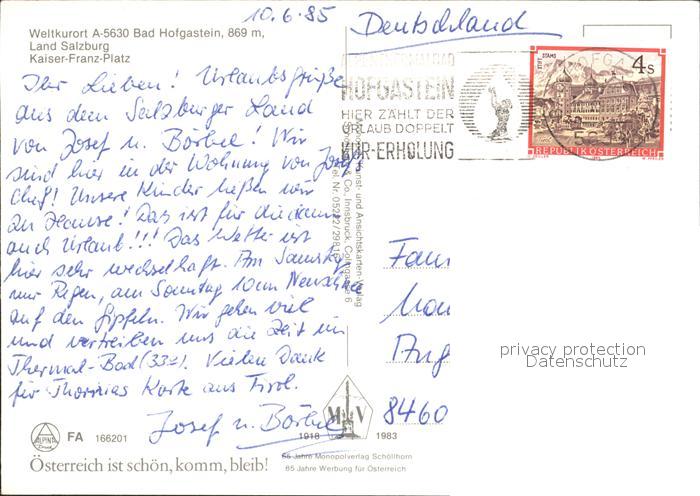 Weltkurort A-5630 Bad Hofgastein, 869 m,
Land Salzburg
Kaiser-Franz-Platz
10.6.85
Deutschland
HOFGASTEIN
HIER ZÄHLT DER
URLAUB DOPPELT
KUR-ERHOLUNG
STIFT STAMS
4 S
REPUBLIK ÖSTERREICH
Ihr Lieben! Urlaubsgrüße
aus dem Salzburger Land
von Josef u. Bärbel! Wir
sind hier in der Wohnung von Josefs
Chef! Unsere Kinder ließen wir
zu Hause! Das ist für die dann
auch Urlaub!!! Das Wetter ist
hier sehr wechselhaft. Am Samstag
nur Regen, am Sonntag 10 cm Neuschnee
auf den Gipfeln. Wir gehen viel
und vertreiben uns die Zeit im
Thermal-Bad (33°). Vielen Dank
für Karte aus Tirol.
Josef u. Bärbel
Fam
8460
privacy protection
Datenschutz
ALPINA
Druck
FA 166201
M V
1918 1983
65 Jahre Monopolverlag Schöllhorn
65 Jahre Werbung für Österreich
Österreich ist schön, komm, bleib!
Kunst- und Ansichtskarten-Verlag
& Co., Innsbruck,